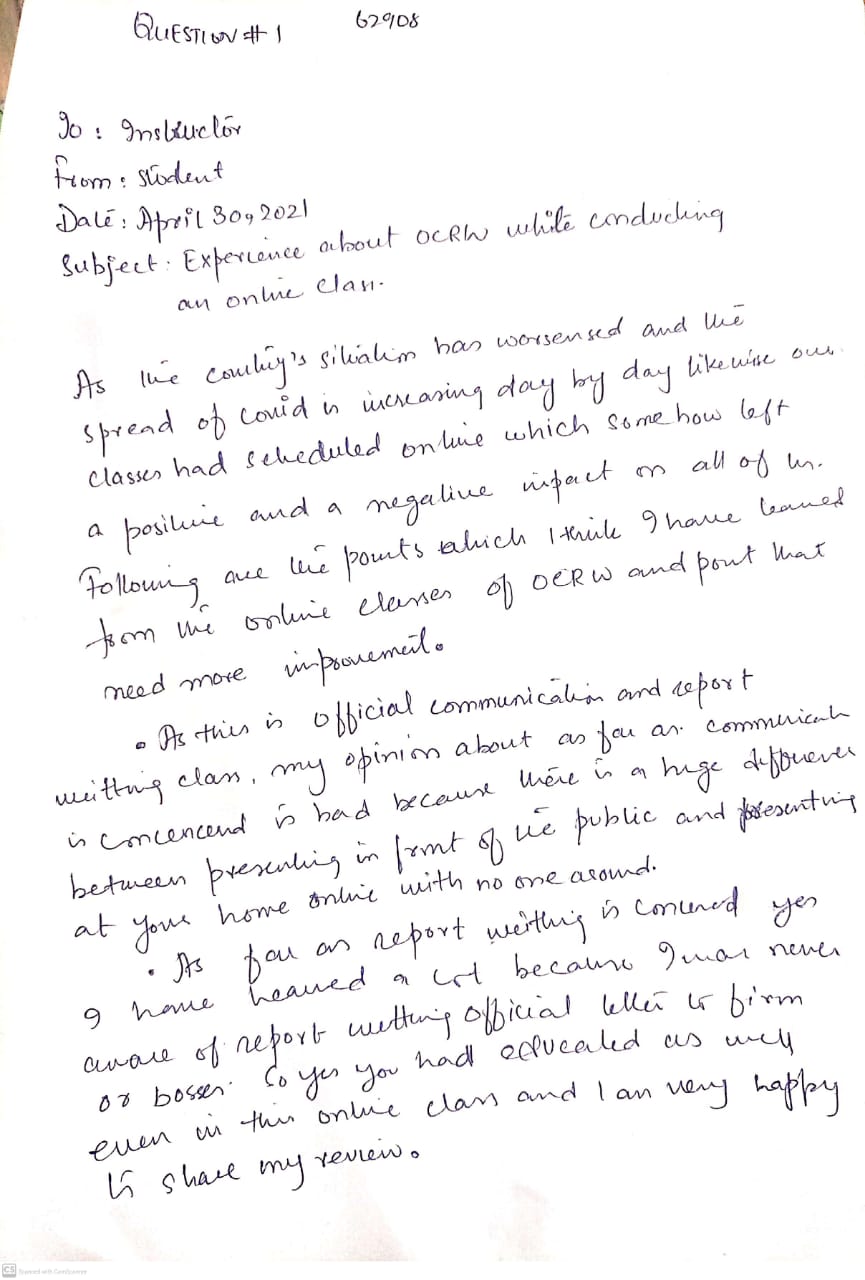 QUESTION # 1 62908
To : Instructor
From : Student
Date : April 30, 2021
Subject : Experience about OCRW while conducting
an online class.
As the country's situation has worsensed and the
spread of covid is increasing day by day likewise our
classes had scheduled online which somehow left
a positive and a negative impact on all of us.
Following are the points which I think I have learned
from the online classes of OCRW and point that
need more improvement.
• As this is official communication and report
writting class, my opinion about as far as communicatn
is concencend is bad because there is a huge
between presenting in front of the public and presenting
at your home online with no one around.
• As far as report writting is concerned yes
I have learned a lot because I was never
aware of report writting official letter to firm
or bosses. So yes you had educated us well
even in this online class and I am very happy
to share my review.
CS Scanned with CamScanner